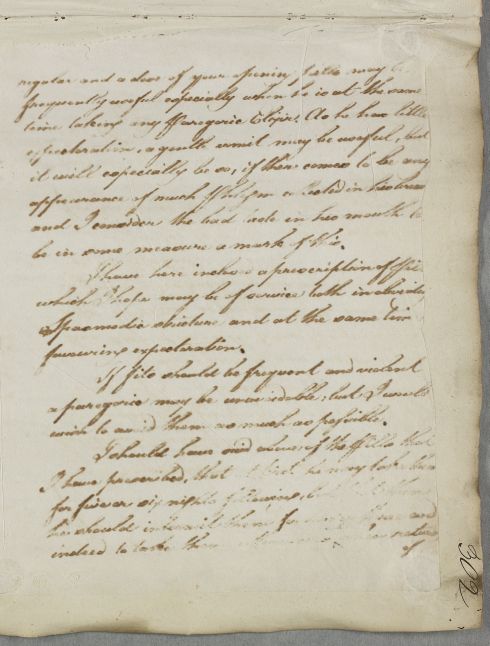 regular and a dose of your opening salts may be
frequently useful especially when he is at the same
time taking any Paregoric Elixir. As he has little
expectoration, a gentle vomit may be useful, but
it will especially be so, if there comes to be any
appearance of much Phlegm collected in his breast
and I consider the bad taste in his mouth to
be in some measure a mark of this.
I have here inclosed a prescription of Pills
which I hope may be of service both in obviating
Spasmodic stricture and at the same time
favouring expectoration.
If fits should be frequent and violent
a paregoric may be unavoidable, but I would
wish to avoid them as much as possible.
I should have said above, of the Pills that
I have prescribed, that at first he may take them
for five or six nights following, but
he should intermit them for and
indeed to take them nature
of
309